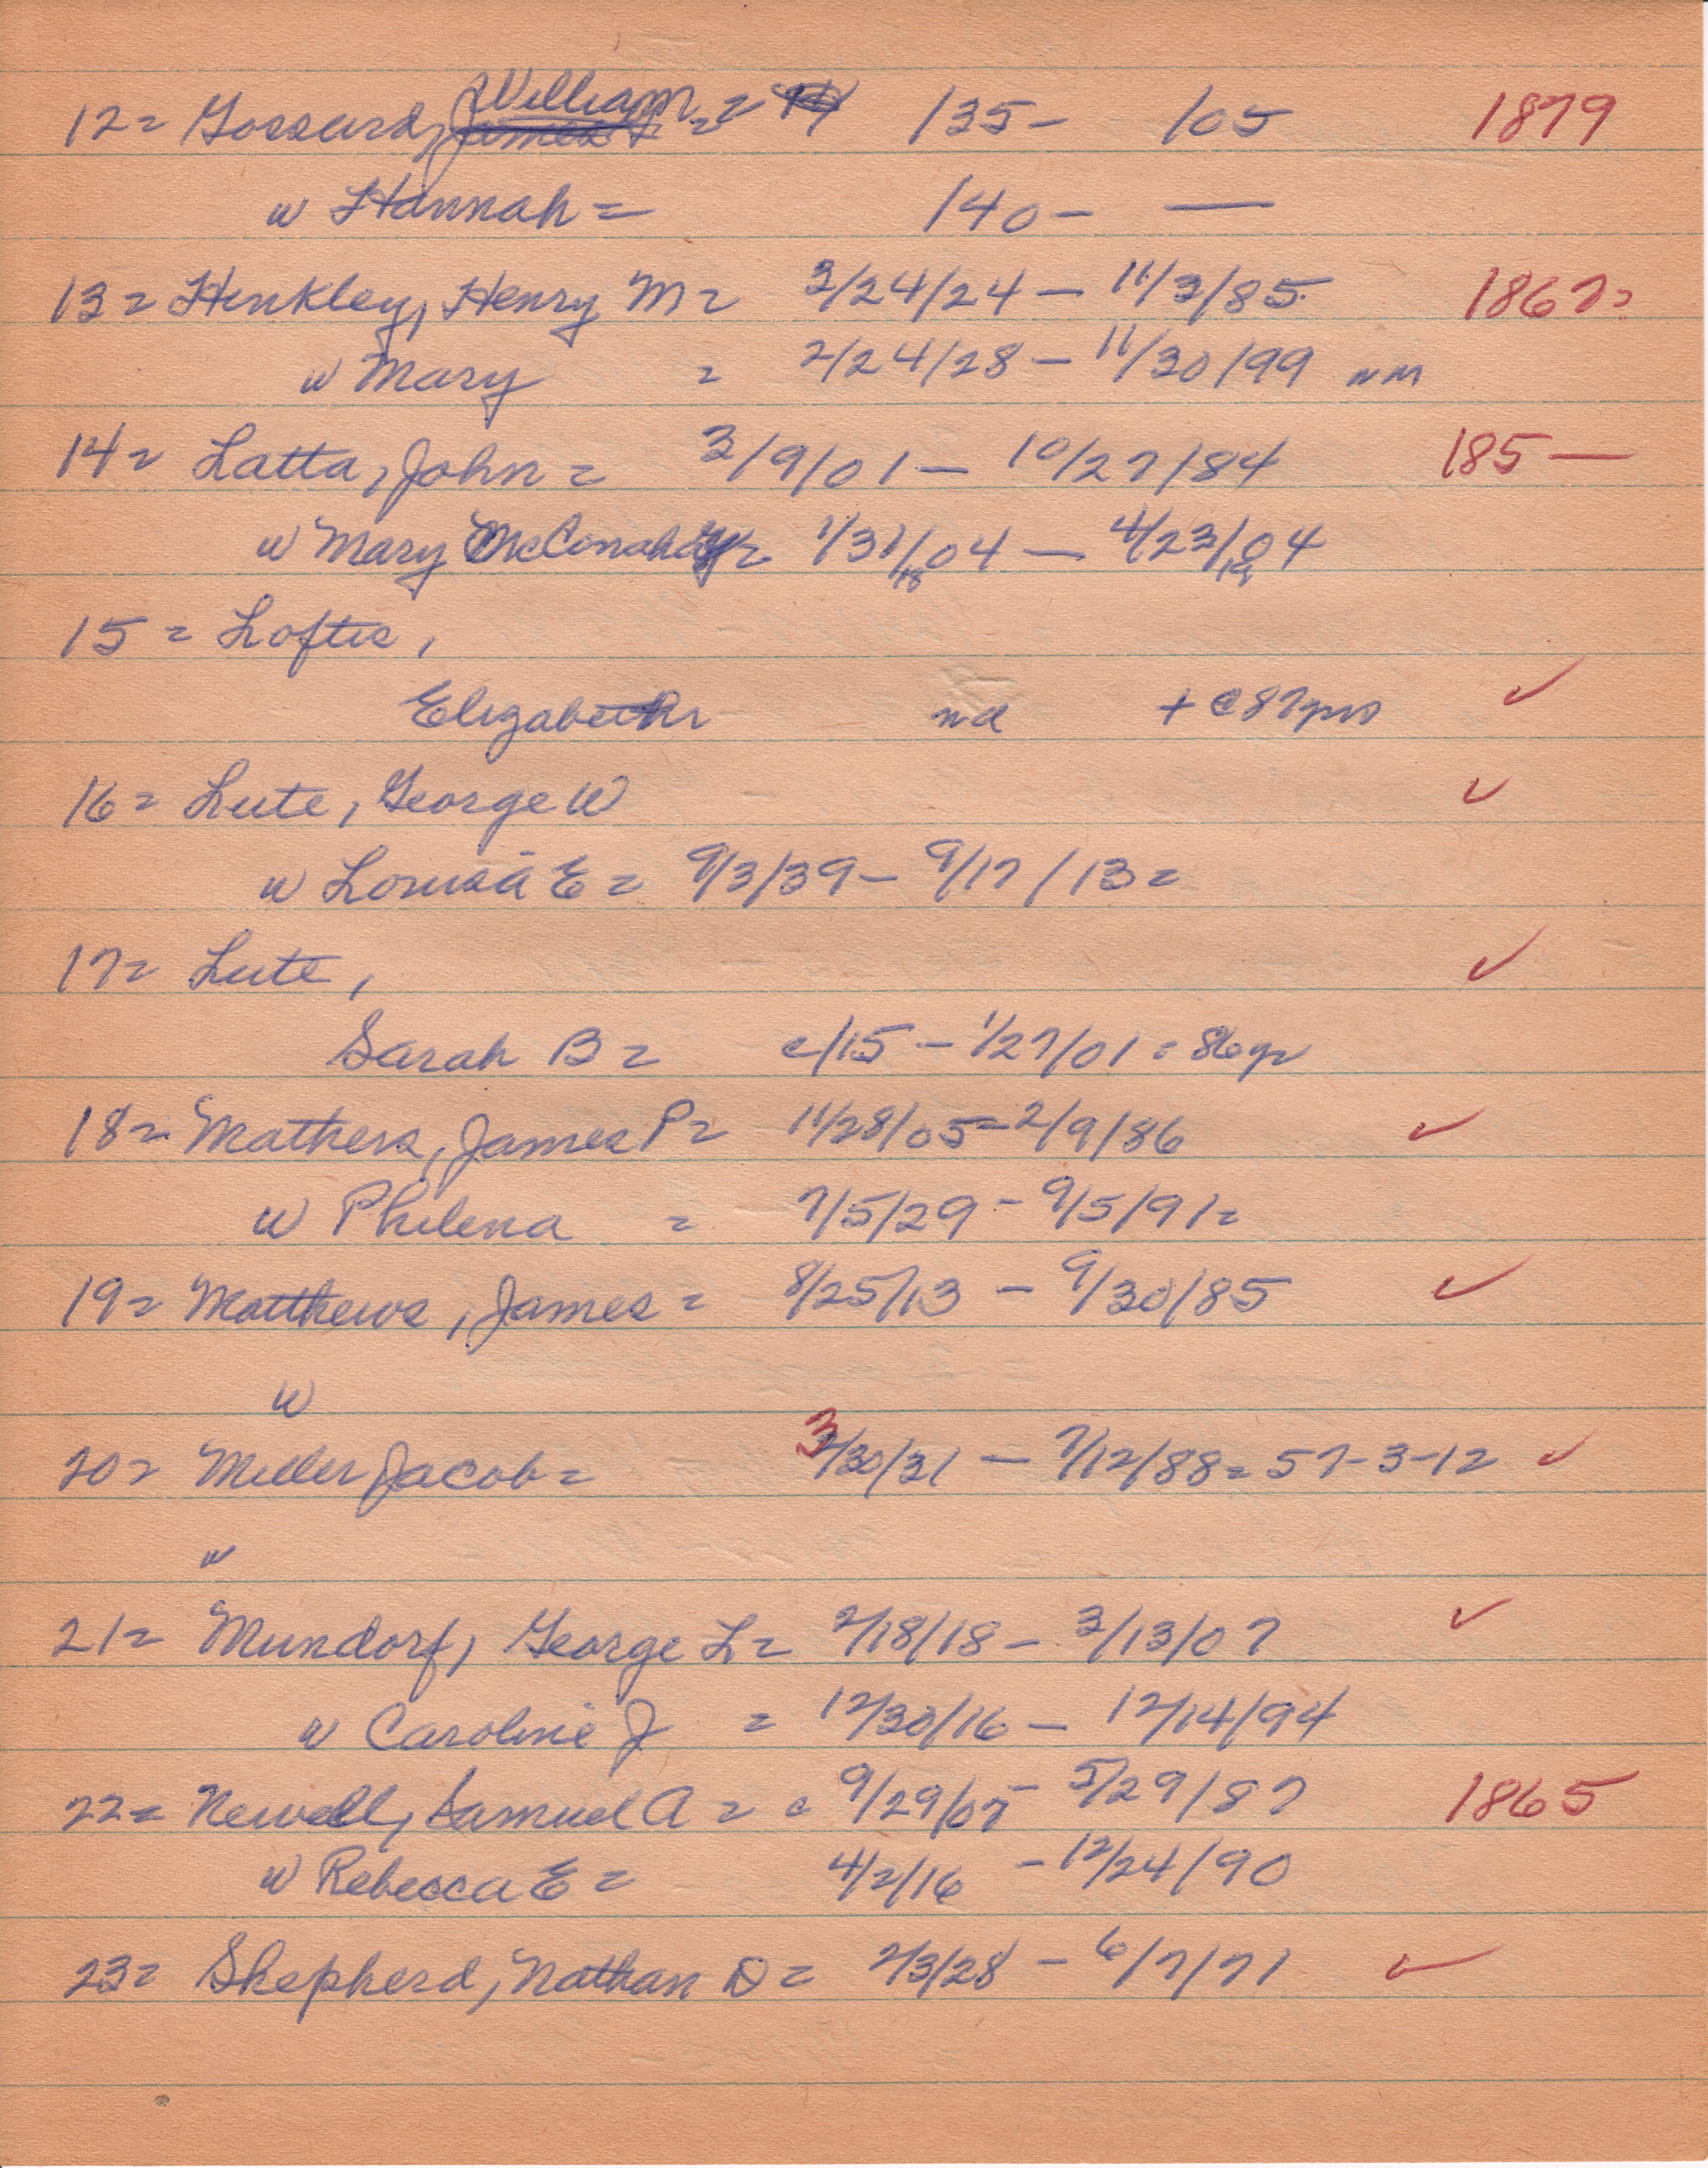 12= Gossard, William = /35- /05 1879
w Hannah = /40- —
13= Henkley, Henry M= 3/24/24 - 11/3/85 1867=
w Mary = 2/24/28 - 11/30/99 nm
14= Latta, John = 3/9/01 - 10/27/84 185—
w Mary McConahay= 1/31/1804 — 4/23/1904
15= Loftis,
Elizabeth nd + c 87yrs ✓
16= Lute, George W ✓
w Louisa E = 9/3/39- 9/17/13=
17= Lute, ✓
Sarah B= c/15 - 1/27/01 = 86yr
18= Mathers, James P= 11/28/05-2/9/86 ✓
w Philena = 7/5/29 - 9/5/91=
19= Matthews, James = 8/25/13 - 9/30/85 ✓
w
20= Miller Jacob= 3/30/31 - 7/12/88= 57-3-12 ✓
w
21= Mundorf, George L= 2/18/18 - 3/13/07 ✓
w Caroline J = 12/30/16 - 12/14/94
22= Newell, Samuel A = c 9/29/07 - 5/29/87 1865
w Rebecca E = 4/2/16 - 12/24/90
23= Shepherd, Nathan D= 2/3/28 - 6/7/71 ✓